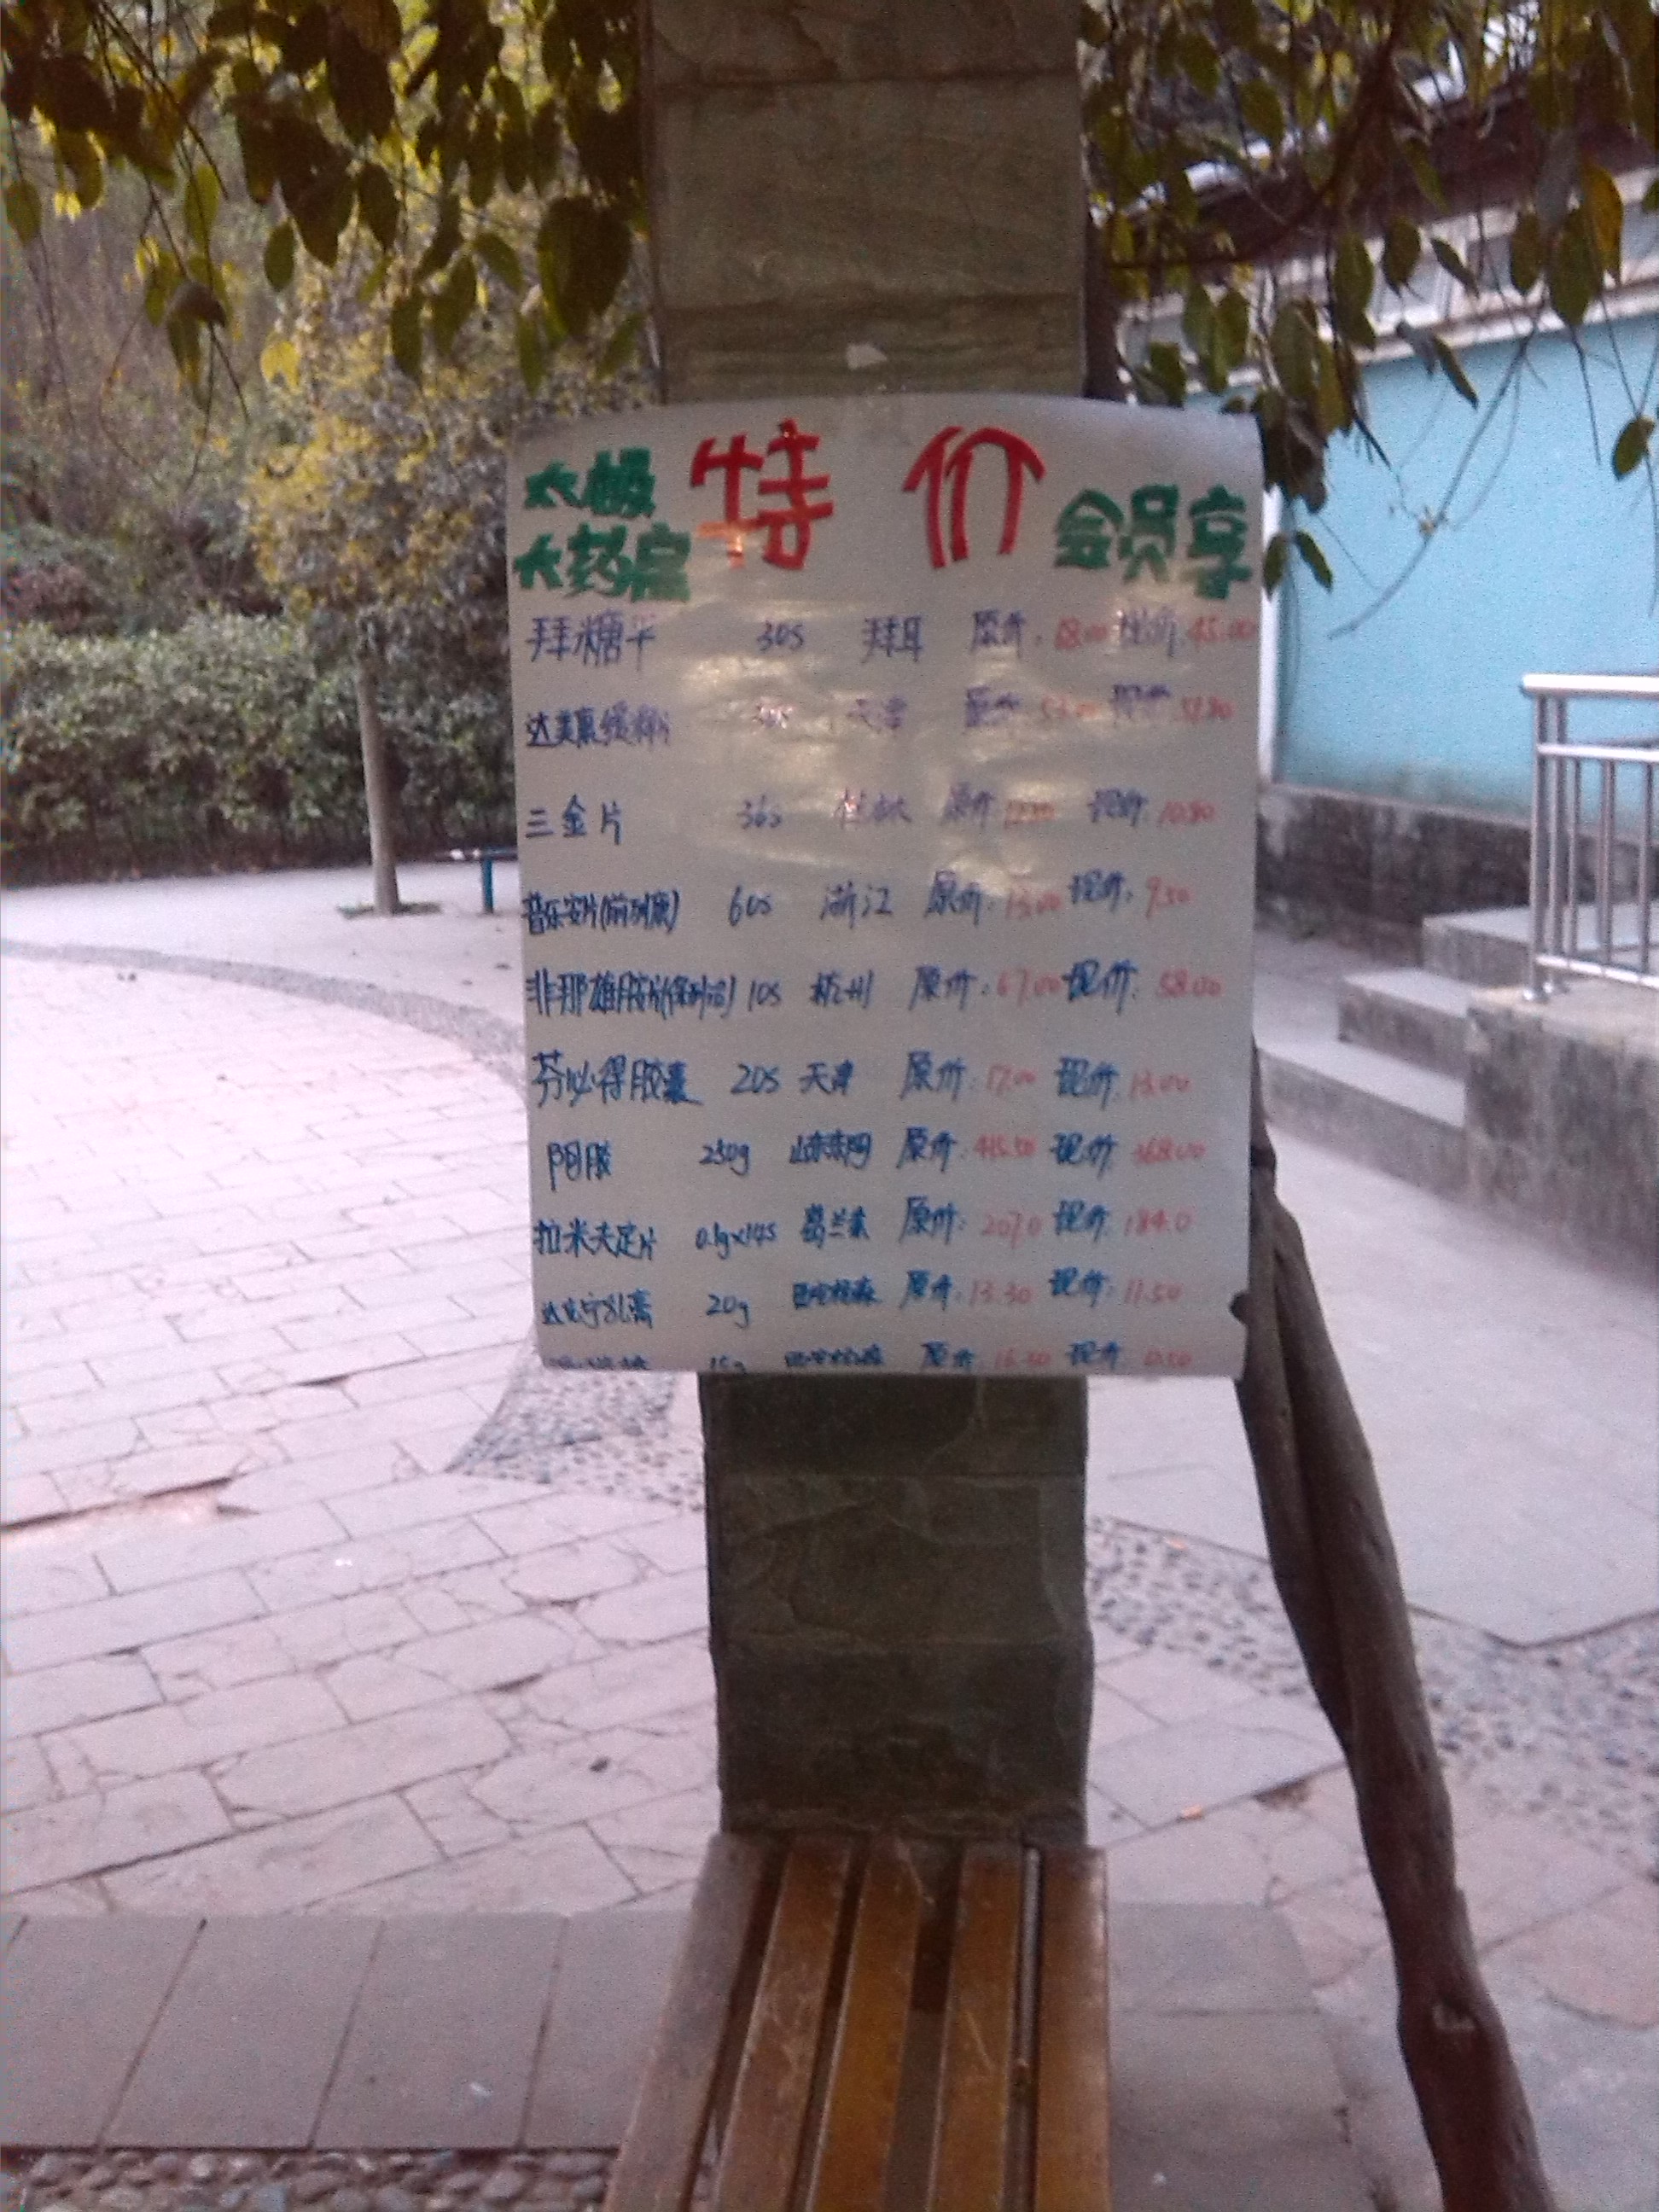 太极 特价 会员享
大药房
拜糖平 30S 拜耳 原价: 68.00 现价: 45.00
达美康缓释片 30S 天津 原价: 53.00 现价:
三金片 36S 桂林 原价: 现价: 10.80
普乐安片(前列康) 60S 浙江 原价: 13.00 现价: 9.50
非那雄胺片(保列治) 10S 杭州 原价: 67.00 现价: 58.00
芬必得胶囊 20S 天津 原价: 17.00 现价: 13.00
阿胶 250g 山东东阿 原价: 415.50 现价: 368.00
拉米夫定片 0.1g×14S 葛兰素 原价: 207.0 现价: 184.0
达克宁乳膏 20g 西安杨森 原价: 13.30 现价: 11.50
15g 西安杨森 原价: 16.30 现价: